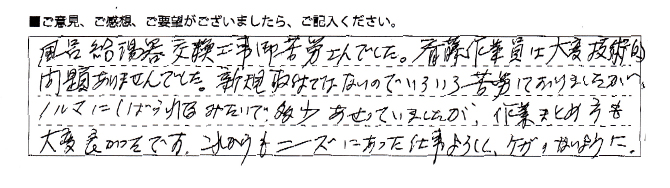 ■ご意見、ご感想、ご要望がございましたら、ご記入ください。
風呂給湯器交換工事御苦労さんでした。斉藤作業員は大変技術的
問題ありませんでした。新規取付ではないのでいろいろ苦労しておりましたが、
ノルマにしばられるみたいで多少あせっていましたが、作業まとめ方も
大変良かったです。これからもニーズにあった仕事よろしく、ケガのないように。